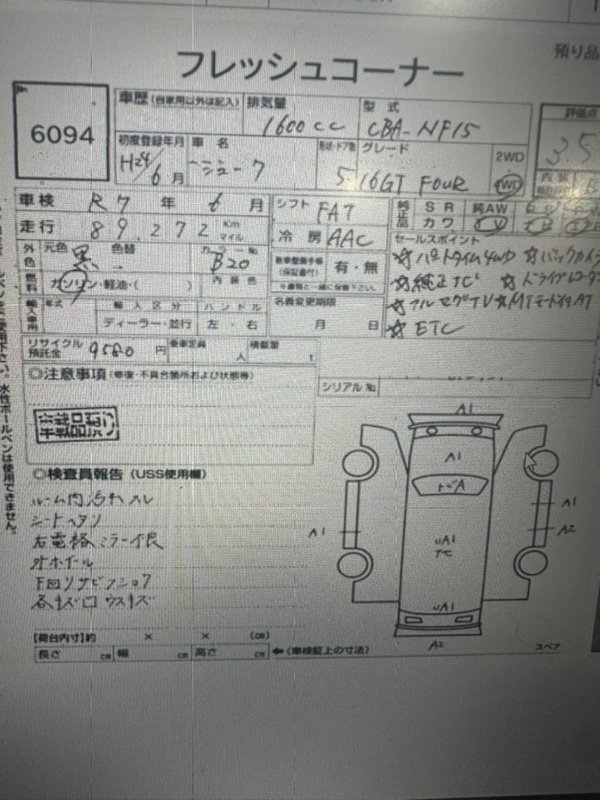 フレッシュコーナー
預り品
6094
車歴 (自家用以外は記入)
排気量
1600cc
型式
CBA-NF15
評価点
3.5
初度登録年月
H24/6月
車名
ジューク
形状・ドア数
5
グレード
16GT FOUR
2WD
4WD
車検 R7年 6月
シフト FAT
純正品 SR 純AW
カワ
走行 89,272 Km
マイル
冷房 AAC
セールスポイント
外色 元色 黒 色替
カラーNo. B20
新車整備手帳
(保証書付)
有・無
☆パートタイム4WD ☆バックカメラ
☆純正
☆ドライブレコーダ
燃料 ガソリン・軽油・( )
内装色
☆フルセグTV ☆MTモード付AT
輸入車用 年式 輸入区分 ハンドル
名義変更期限
ディーラー・並行 左・右
月 日
☆ETC
リサイクル預託金 9580円
乗車定員 人
積載量 t
◎注意事項 (修復・不具合箇所および状態等)
シリアルNo.
◎検査員報告 (USS使用欄)
ルーム内汚れスレ
シートヘタリ
右電格ミラー不良
下回りサビ
各キズ ウスキズ
A1
A1
A1
A2
A1
UA1
UA1
A2
スペア
【荷台内寸】約 × × (cm)
長さ cm 幅 cm 高さ cm ←(車検証上の寸法)
水性ボールペンは使用できません。